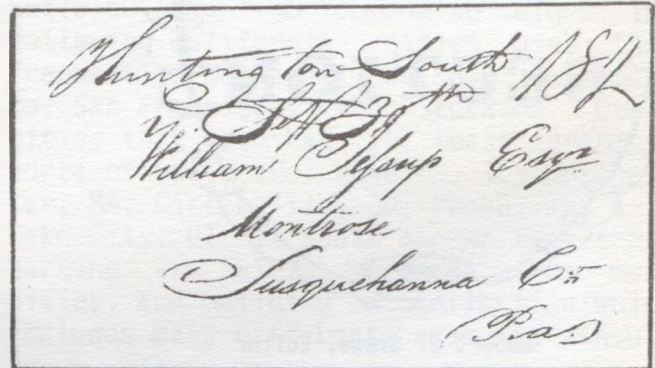 Huntington South 18¾
Sept 30th
William Jessup Esqr
Montrose
Susquehanna Co
Pa.